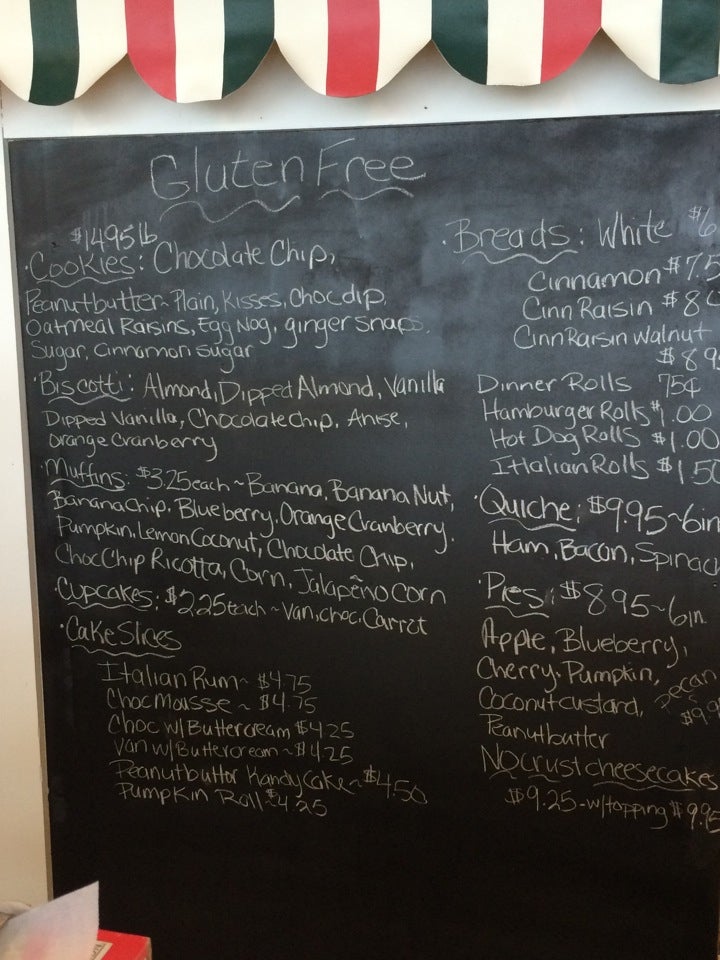 Gluten Free
$14.95 lb
·Cookies: Chocolate Chip,
Peanutbutter~Plain, Kisses, Choc dip,
Oatmeal Raisins, Egg Nog, ginger snaps,
Sugar, Cinnamon Sugar
·Biscotti: Almond, Dipped Almond, Vanilla
Dipped Vanilla, Chocolate Chip, Anise,
Orange Cranberry
·Muffins: $3.25 each ~ Banana, Banana Nut,
Banana chip, Blueberry, Orange Cranberry,
Pumpkin, Lemon Coconut, Chocolate Chip,
Choc Chip Ricotta, Corn, Jalapeño Corn
·Cupcakes: $2.25 each ~ Van, choc, Carrot
·Cake Slices
Italian Rum ~ $4.75
Choc Mousse ~ $4.75
Choc w/ Buttercream $4.25
Van w/ Buttercream ~ $4.25
Peanutbutter Kandy Cake ~ $4.50
Pumpkin Roll $4.25
·Breads: White $6
Cinnamon $7.5
Cinn Raisin $8
Cinn Raisin Walnut
$8.9
Dinner Rolls 75¢
Hamburger Rolls $1.00
Hot Dog Rolls $1.00
Itialian Rolls $1.50
·Quiche: $9.95 ~ 6in
Ham, Bacon, Spinach
·Pies: $8.95 ~ 6in.
Apple, Blueberry,
Cherry, Pumpkin,
Coconut custard, Pecan
$9.9
Peanutbutter
No crust cheesecakes
$9.25 - w/topping $9.95